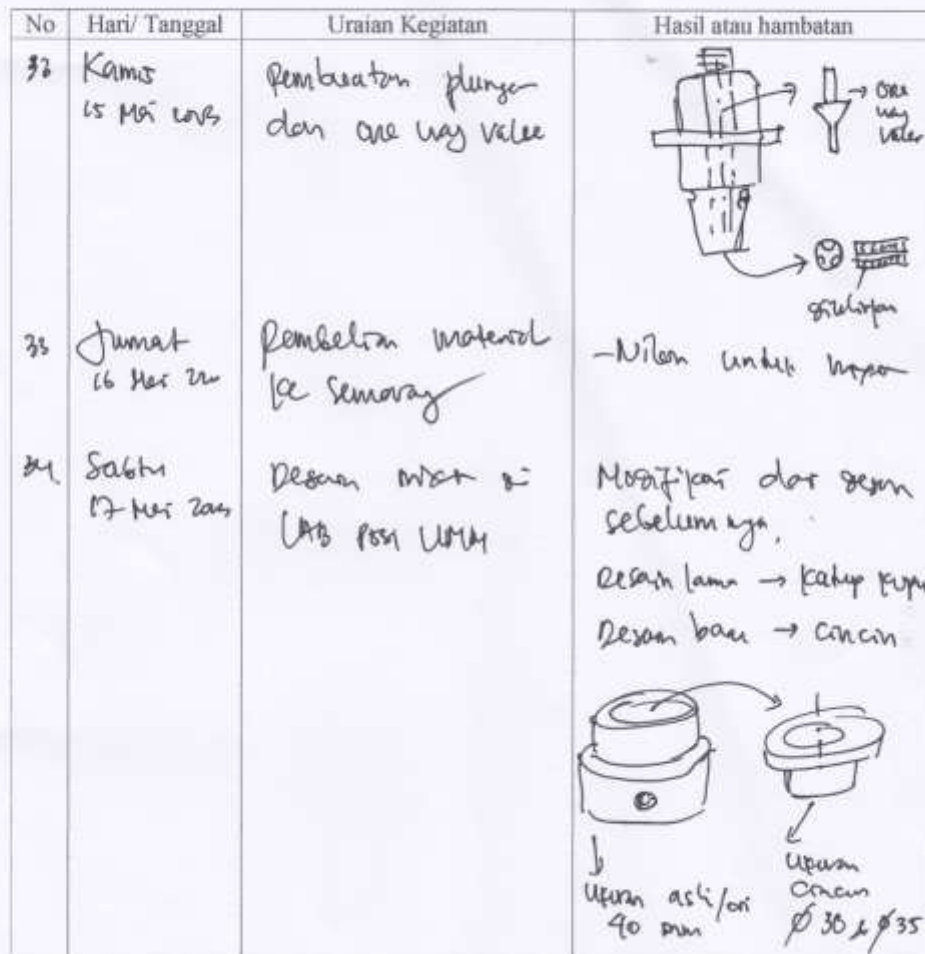 No Hari/ Tanggal Uraian Kegiatan Hasil atau hambatan
Kamis
15 Mei
Pembuatan plunger
dan one way valve
→ one
way
valve
33 Jumat
16 Mei
Pembelian material
ke Semarang
-Nilon untuk
34 Sabtu
17 Mei
Desain
LAB
Modifikasi dari
sebelumnya.
Desain lama → katup
Desain baru → cincin
Ukuran asli/ori
40 mm
Ukuran
Cincin
ø 30 & ø 35